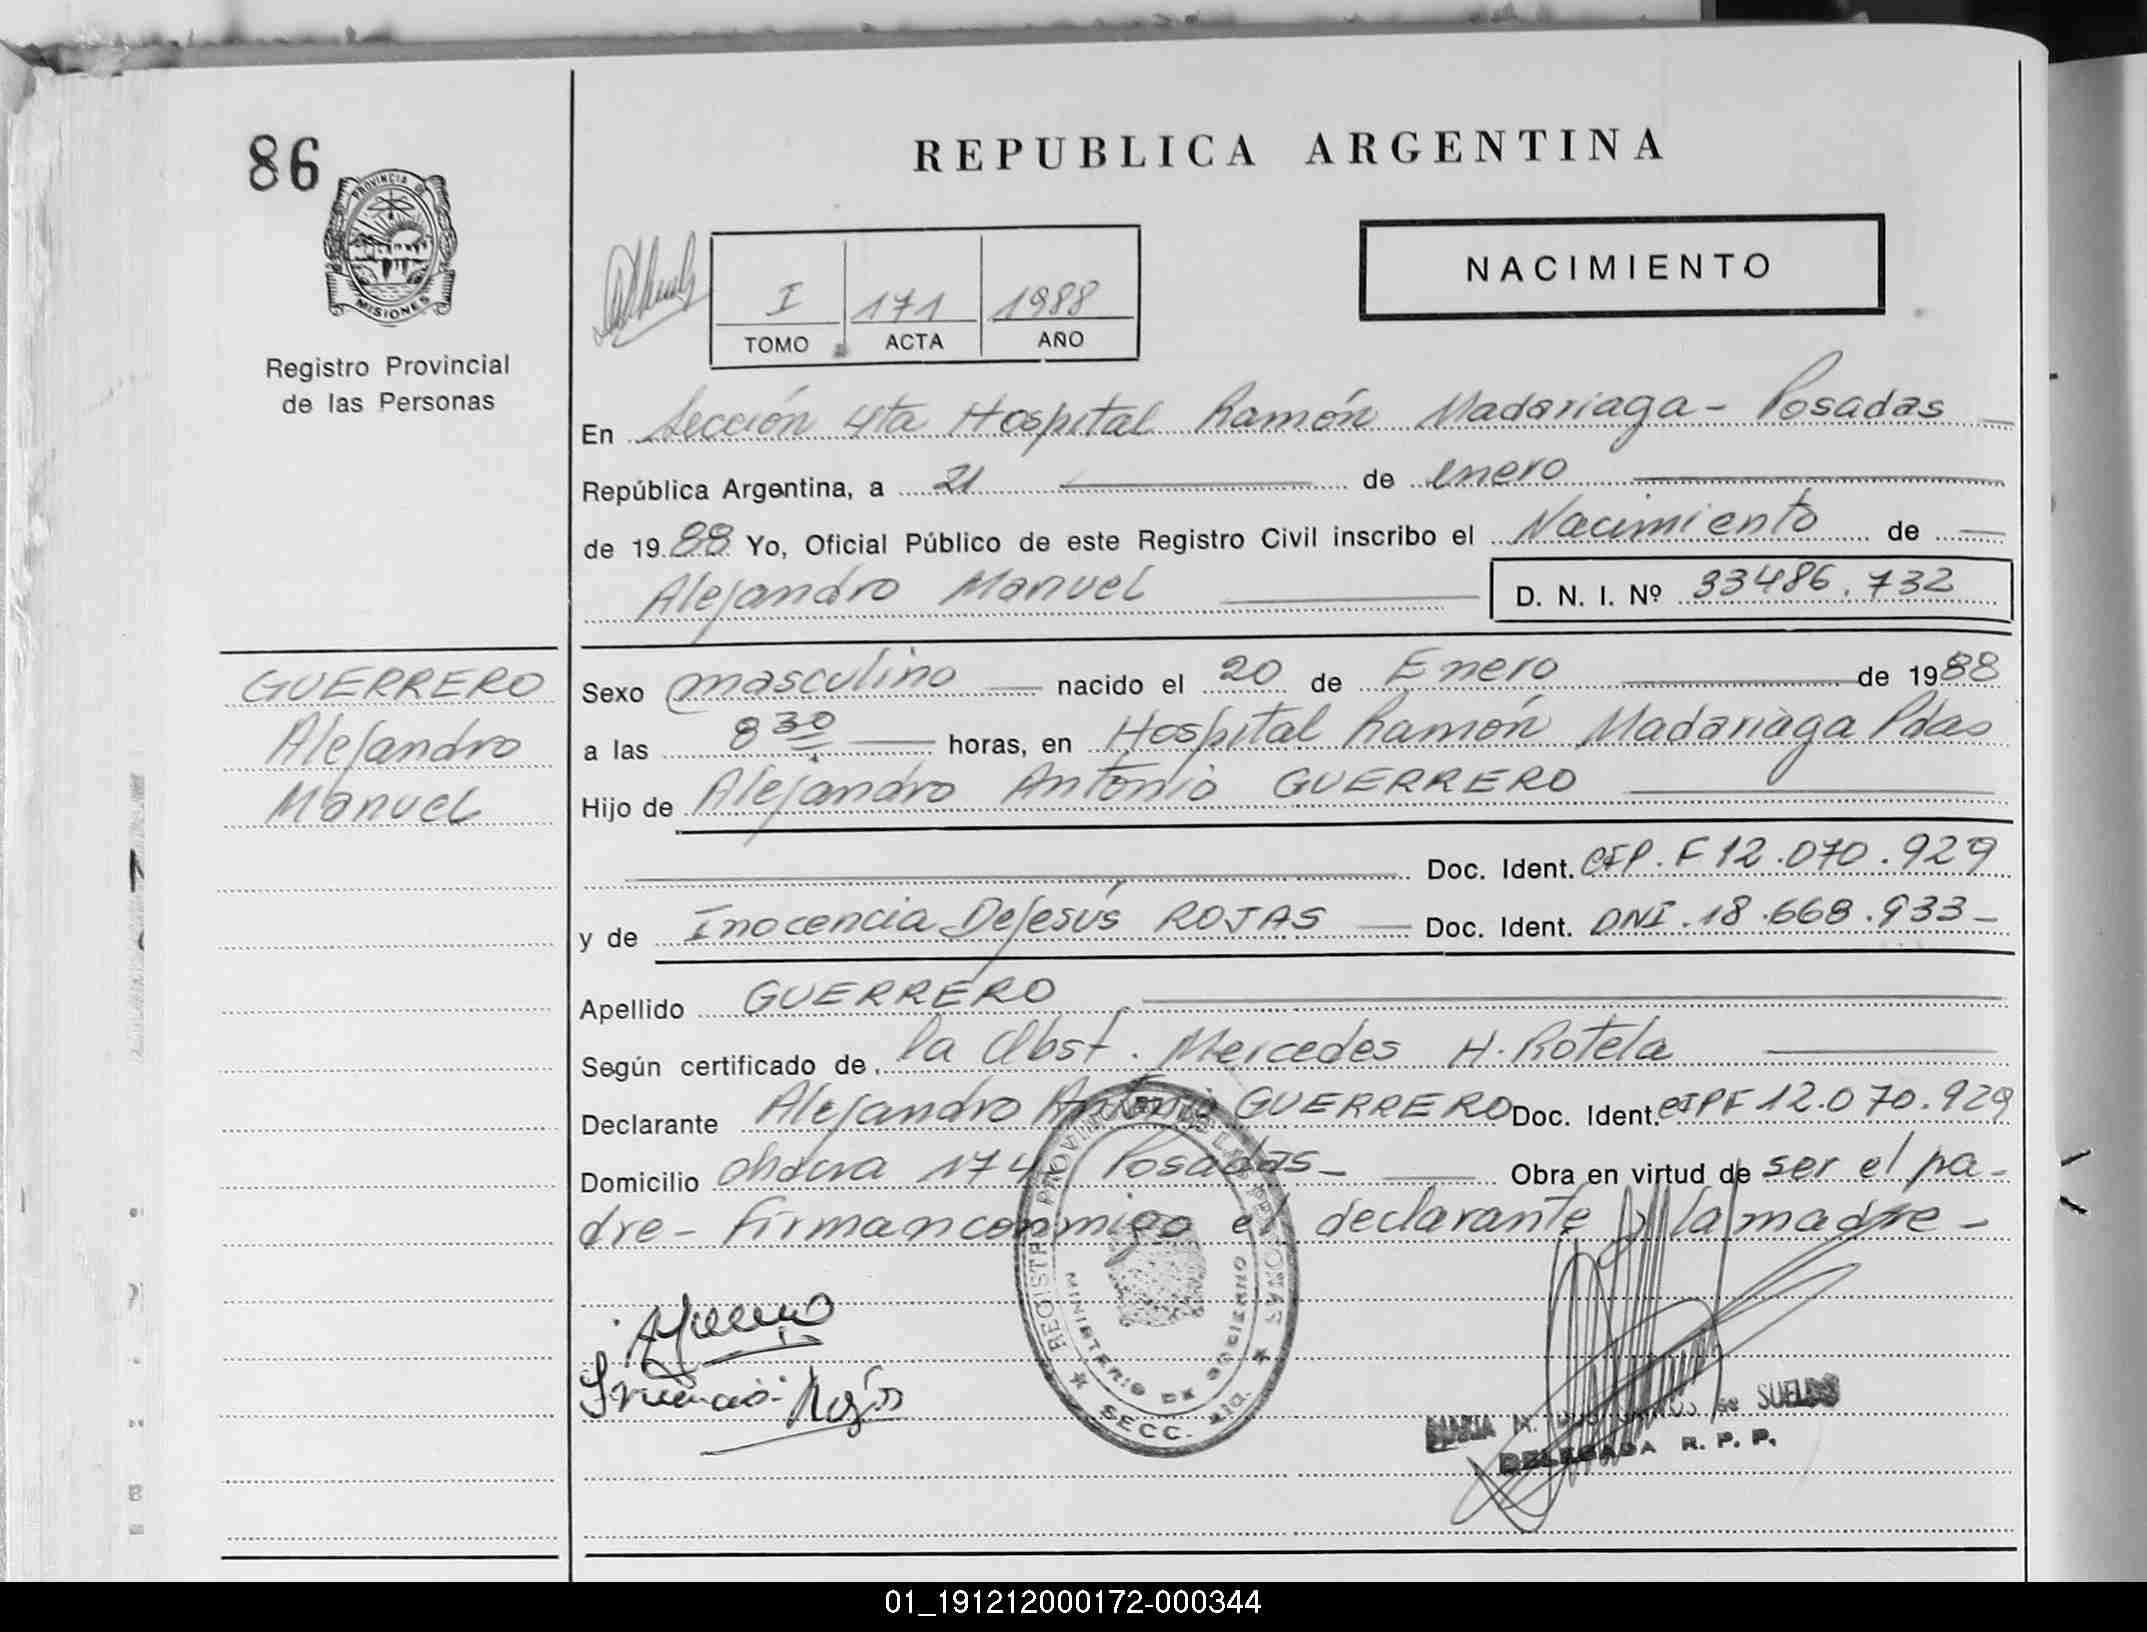 86
PROVINCIA DE
MISIONES
Registro Provincial
de las Personas
GUERRERO
Alejandro
Manuel
REPUBLICA ARGENTINA
I 171 1988
TOMO ACTA AÑO
NACIMIENTO
En Sección 4ta Hospital Ramón Madariaga - Posadas
República Argentina, a 21 de enero
de 1988 Yo, Oficial Público de este Registro Civil inscribo el Nacimiento de
Alejandro Manuel D. N. I. Nº 33486.732
Sexo masculino nacido el 20 de Enero de 1988
a las 8 30 horas, en Hospital Ramón Madariaga Pdas
Hijo de Alejandro Antonio GUERRERO
Doc. Ident. CIP. F 12.070.929
y de Inocencia DeJesús ROJAS Doc. Ident. DNI. 18.668.933-
Apellido GUERRERO
Según certificado de la Obst. Mercedes H. Rotela
Declarante Alejandro Antonio GUERRERO Doc. Ident. CIPF 12.070.929
Domicilio 174 Posadas- Obra en virtud de ser el pa-
dre- firman conmigo el declarante y la madre-
REGISTRO PROVINCIAL DE LAS PERSONAS
MINISTERIO DE GOBIERNO
SECC. 4ta.
Rojas
MARIA de SUELDO
DELEGADA R. P. P.
01_191212000172-000344